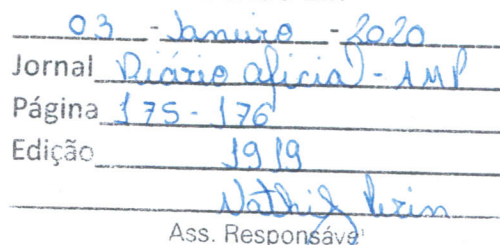 03 - Janeiro - 2020
Jornal Diário Oficial - AMP
Página 175 - 176
Edição 1919
Ass. Responsável